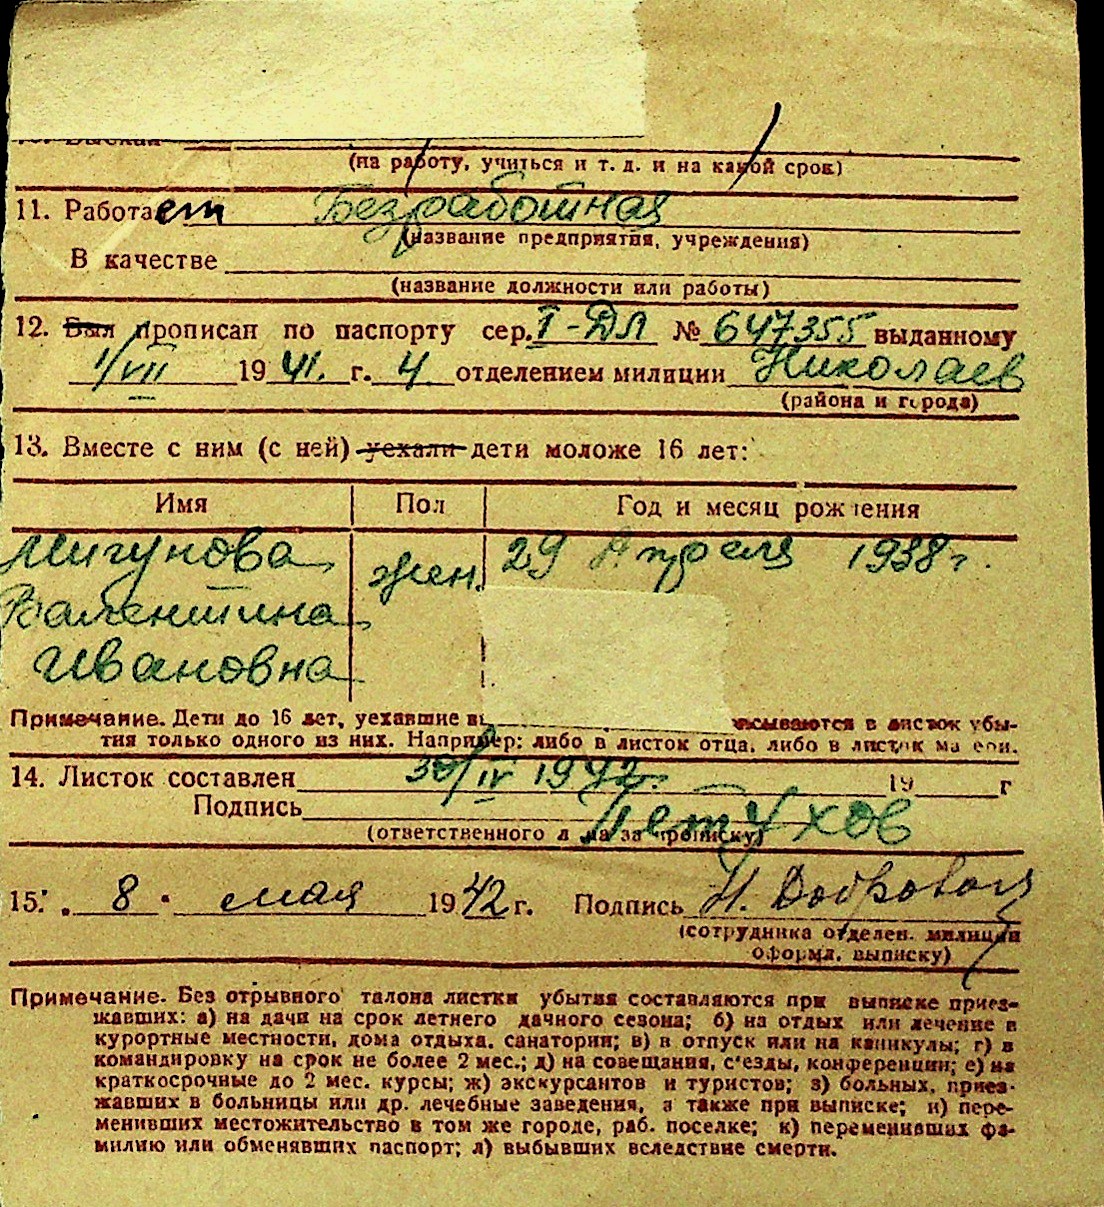 (на работу, учиться и т. д. и на какой срок)
11. Работает Безработная
(название предприятия, учреждения)
В качестве
(название должности или работы)
12. Был прописан по паспорту сер. I-ДЛ № 647355 выданному
1/VII 1941. г. 4 отделением милиции Николаев
(района и города)
13. Вместе с ним (с ней) уехали дети моложе 16 лет:
Имя Пол Год и месяц рождения
Мигунова жен. 29 Апреля 1938 г.
Валентина
Ивановна
Примечание. Дети до 16 лет, уехавшие вписываются в листок убы-
тия только одного из них. Например: либо в листок отца, либо в листок матери.
14. Листок составлен 30/IV 1942. 19 г
Подпись Петухов
(ответственного лица за прописку)
15. 8 мая 1942 г. Подпись Н.
(сотрудника отделен. милиции
оформл. выписку)
Примечание. Без отрывного талона листки убытия составляются при выписке приез-
жавших: а) на дачи на срок летнего дачного сезона; б) на отдых или лечение в
курортные местности, дома отдыха, санатории; в) в отпуск или на каникулы; г) в
командировку на срок не более 2 мес.; д) на совещания, с'езды, конференции; е) на
краткосрочные до 2 мес. курсы; ж) экскурсантов и туристов; з) больных, приез-
жавших в больницы или др. лечебные заведения, а также при выписке; и) пере-
менивших местожительство в том же городе, раб. поселке; к) переменивших фа-
милию или обменявших паспорт; л) выбывших вследствие смерти.